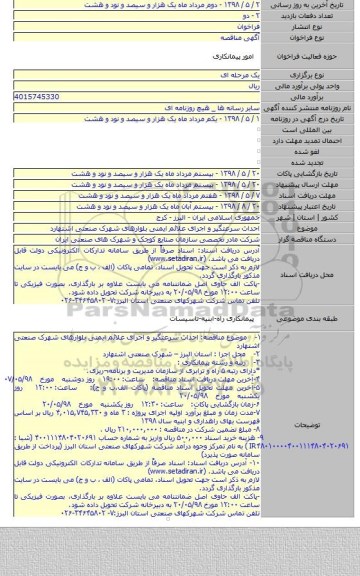 تاریخ آخرین به روز رسانی ۲ / ۵ / ۱۳۹۸ - دوم مرداد ماه یک هزار و سیصد و نود و هشت
تعداد دفعات بازدید ۲ - دو
نوع انتشار فراخوان
نوع فراخوان آگهی مناقصه
حوزه فعالیت فراخوان امور پیمانکاری
نوع برگزاری یک مرحله ای
واحد پولی برآورد مالی ریال
برآورد مالی 4015745330
نام روزنامه منتشر کننده آگهی سایر رسانه ها _ هیچ روزنامه ای
تاریخ درج آگهی در روزنامه ۱ / ۵ / ۱۳۹۸ - یکم مرداد ماه یک هزار و سیصد و نود و هشت
بین المللی است
احتمال تمدید مهلت دارد
لغو شده
تجدید شده
تاریخ بازگشایی پاکات ۲۰ / ۵ / ۱۳۹۸ - بیستم مرداد ماه یک هزار و سیصد و نود و هشت
مهلت ارسال پیشنهاد ۲۰ / ۵ / ۱۳۹۸ - بیستم مرداد ماه یک هزار و سیصد و نود و هشت
مهلت دریافت اسناد ۷ / ۵ / ۱۳۹۸ - هفتم مرداد ماه یک هزار و سیصد و نود و هشت
تاریخ اعتبار پیشنهاد ۲۰ / ۸ / ۱۳۹۸ - بیستم آبان ماه یک هزار و سیصد و نود و هشت
کشور | استان | شهر جمهوری اسلامی ایران - البرز - کرج
موضوع احداث سرعتگیر و اجرای علائم ایمنی بلوارهای شهرک صنعتی اشتهارد
دستگاه مناقصه گزار شرکت مادر تخصصی سازمان صنایع کوچک و شهرک های صنعتی ایران
محل دریافت اسناد آدرس دریافت اسناد: اسناد صرفاً از طریق سامانه تدارکات الکترونیکی دولت قابل
دریافت می باشد. (www.setadiran.ir)
لازم به ذکر است جهت تحویل اسناد، تمامی پاکات (الف ، ب و ج) می بایست در سایت
مذکور بارگذاری گردد.
-پاکت الف حاوی اصل ضمانتنامه می بایست علاوه بر بارگذاری، بصورت فیزیکی تا
ساعت ۱۲:۰۰ مورخ ۲۰/۰۵/۹۸ به دبیرخانه شرکت تحویل داده شود.
تلفن تماس شرکت شهرکهای صنعتی استان البرز:۷-۳۴۶۴۵۸۰۲-۰۲۶
طبقه بندی موضوعی پیمانکاری-راه-ابنیه-تاسیسات
توضیحات ۱- موضوع مناقصه: احداث سرعتگیر و اجرای علائم ایمنی بلوارهای شهرک صنعتی
اشتهارد
۲- محل اجرا : استان البرز – شهرک صنعتی اشتهارد
۳- رتبه و رشته پیمانکاری :
*دارای رتبه ۵ راه و ترابری از سازمان مدیریت و برنامه-ریزی.
۴-آخرین مهلت دریافت اسناد مناقصه: ساعت: ۱۹:۰۰ روز دوشنبه مورخ ۰۷/۰۵/۹۸
۵-آخرین مهلت تحویل اسناد مناقصه (پاکات الف، ب و ج): ساعت: ۱۲:۰۰ روز
یکشنبه مورخ ۲۰/۰۵/۹۸
۶-زمان بازگشایی پاکات: ساعت: ۱۲:۳۰ روز یکشنبه مورخ ۲۰/۰۵/۹۸
۷-مدت زمان و مبلغ برآورد اولیه اجرای پروژه : ۳ ماه و ۴,۰۱۵,۷۴۵,۳۳۰ ریال بر اساس
فهرست بهای راهداری و ابنیه سال ۱۳۹۸
۸- مبلغ تضمین شرکت در مناقصه : ۲۱۰,۰۰۰,۰۰۰ ریال .
۹- هزینه خرید اسناد ۵۰۰,۰۰۰ ریال واریز به شماره حساب ۴۰۰۱۱۱۴۸۰۴۰۲۰۶۹۱ (شبا :
) به نام تمرکز وجوه درآمد شرکت شهرکهای صنعتی استان البرز (پرداخت از طریق
سامانه صورت پذیرد)
۱۰- آدرس دریافت اسناد: اسناد صرفاً از طریق سامانه تدارکات الکترونیکی دولت قابل
دریافت می باشد. (www.setadiran.ir)
لازم به ذکر است جهت تحویل اسناد، تمامی پاکات (الف ، ب و ج) می بایست در سایت
مذکور بارگذاری گردد.
-پاکت الف حاوی اصل ضمانتنامه می بایست علاوه بر بارگذاری، بصورت فیزیکی تا
ساعت ۱۲:۰۰ مورخ ۲۰/۰۵/۹۸ به دبیرخانه شرکت تحویل داده شود.
تلفن تماس شرکت شهرکهای صنعتی استان البرز:۷-۳۴۶۴۵۸۰۲-۰۲۶